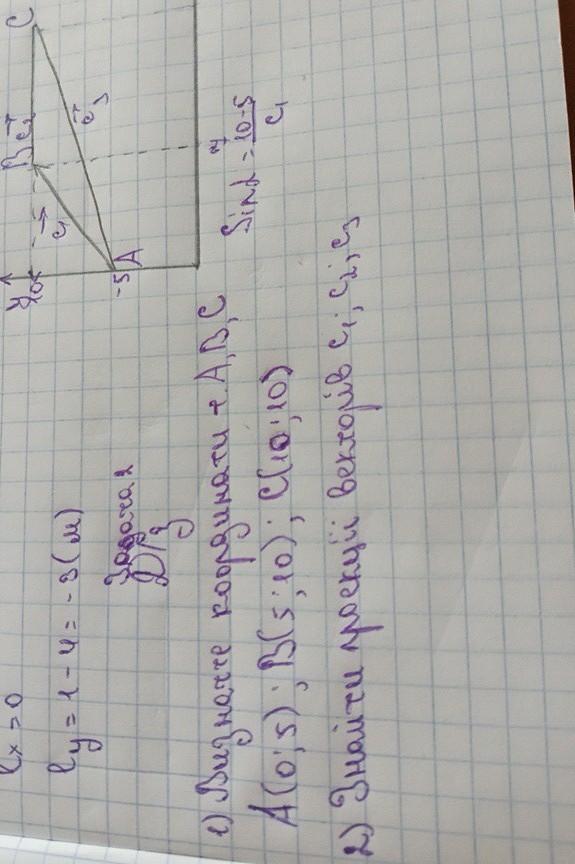 lx = 0
ly = 1 - 4 = -3 (м)
Задача 2
Д/з
1) Визначте координати т. A, B, C
A(0; 5); B(5; 10); C(10; 10)
2) Знайти проекції векторів c₁; c₂; c₃
y
B c₂ C
c₁
c₃
A
Sinα = 10-5/c₁